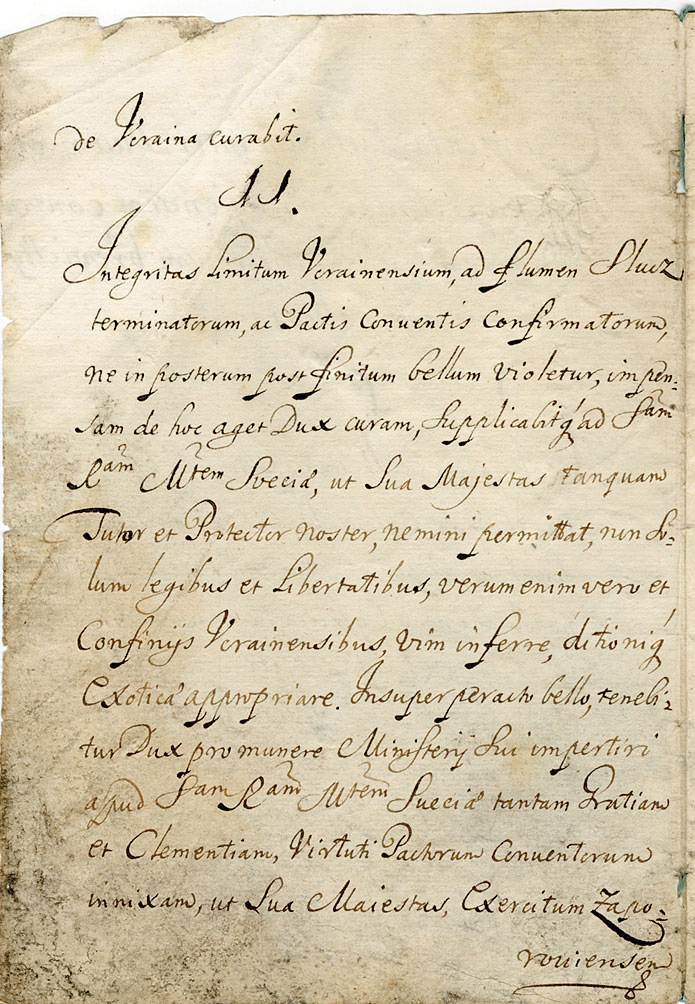 de Vcraina curabit.
II.
Integritas Limitum Vcrainensium, ad flumen Slucz
terminatorum, ac Pactis Conventis confirmatorum,
ne in posterum post finitum bellum violetur, impen-
sam de hoc aget Dux curam, supplicabitq́ ad Sam
Ram Mtem Sveciæ, ut Sua Majestas tanquam
Tutor et Protector noster, nemini permittat, non so-
lum legibus et Libertatibus, verum enim vero et
Confinijs Vcrainensibus, vim inferre, ditioniq́
Exoticæ appropriare. Insuper peracto bello, tenebi-
tur Dux pro munere Ministerij sui impertiri
apud Sam Ram Mtem Sueciæ tantam Gratiam
et Clementiam, Virtuti Pactorum Conventorum
innixam, ut Sua Maiestas, Exercitum Zapo-
roviensem